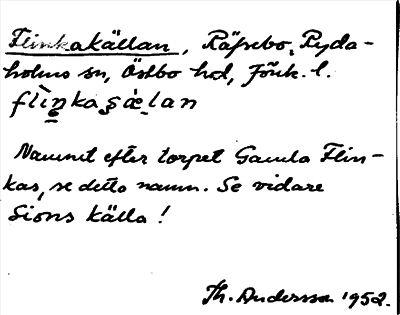 Flinkakällan, Räfsebo, Ryda-
holms sn, Östbo hd, Jönk. l.
flìn̥kaşæ̀lan
Namnet efter torpet Gamla Flin-
kas, se detta namn. Se vidare
Sions källa!
Th. Andersson 1952.